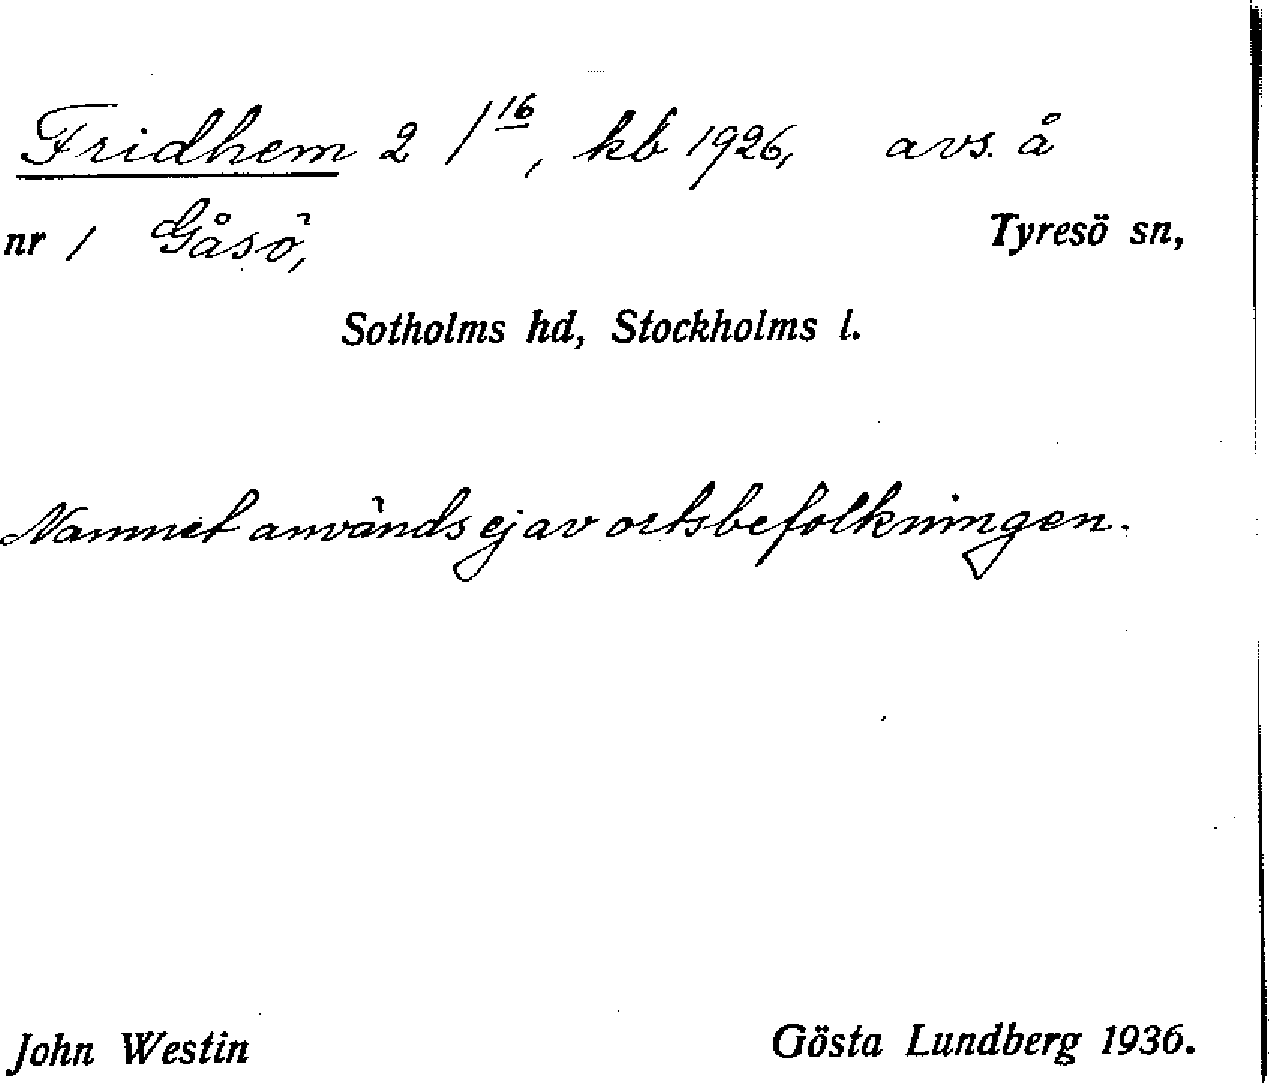 Fridhem 2 1^16, kb 1926, avs. å
nr 1 Gåsö, Tyresö sn,
Sotholms hd, Stockholms l.
Namnet används ej av ortsbefolkningen.
John Westin Gösta Lundberg 1936.